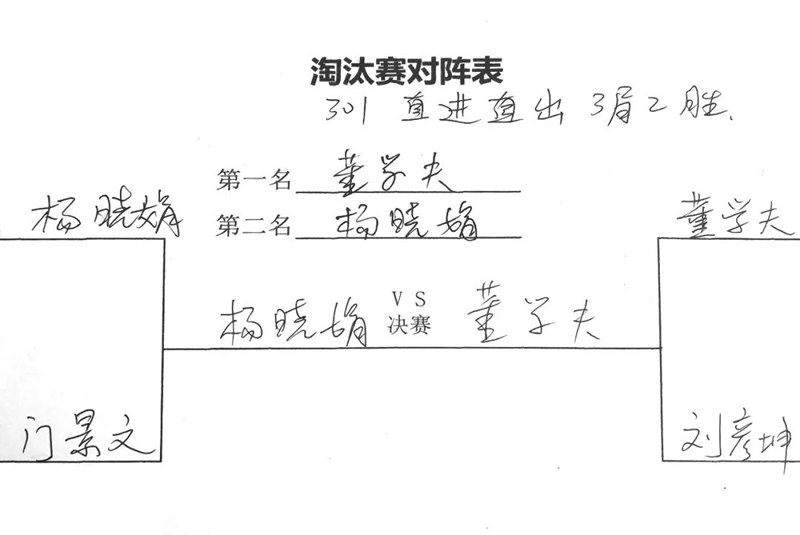 淘汰赛对阵表
301 直进直出 3局2胜.
第一名 董学夫
杨晓娟 第二名 杨晓娟 董学夫
杨晓娟 VS 董学夫
决赛
门景文 刘彦坤